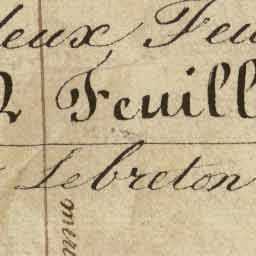 deux Feu
2 Feuill
Lebreton